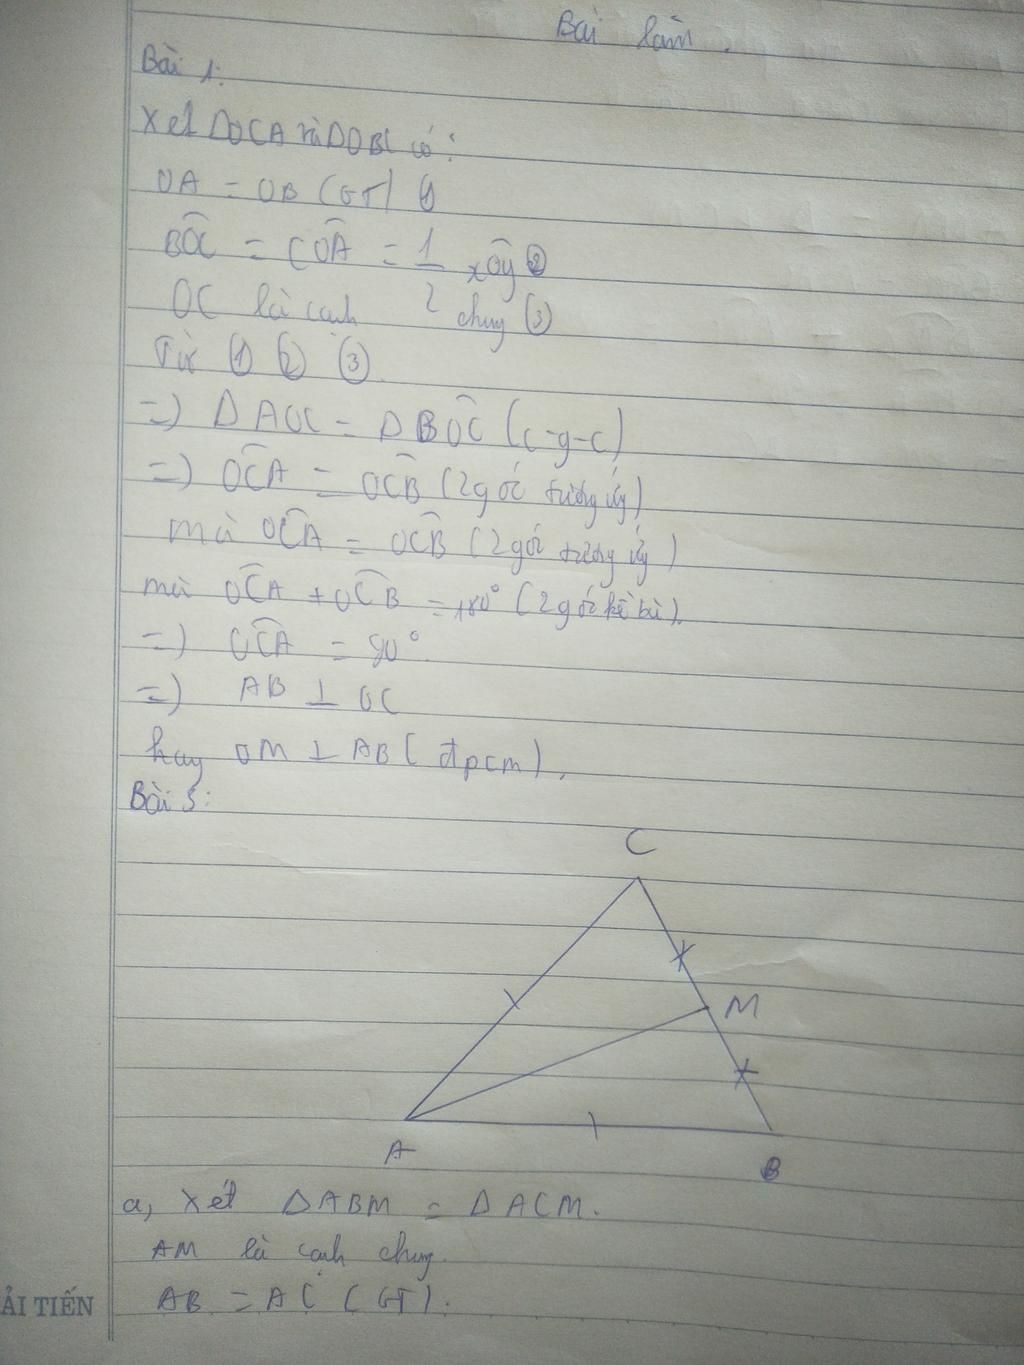 Bài làm.
Bài 1:
Xét ΔOCA và ΔOBC có:
OA = OB (GT) ①
BÔC = CÔA = 1/2 xÔy ②
OC là cạnh chung ③
Từ ① ② ③.
=) Δ AOC = Δ BÔC (c-g-c)
=) OĈA = OĈB (2 góc tương ứng)
mà OĈA = OĈB (2 góc tương ứng)
mà OĈA + OĈB = 180° (2 góc kề bù).
=) OĈA = 90°.
=) AB ⊥ OC
hay OM ⊥ AB (đpcm).
Bài 3:
C
M
A
B
a, Xét ΔABM = ΔACM.
AM là cạnh chung.
AB = AC (GT).
ẢI TIẾN